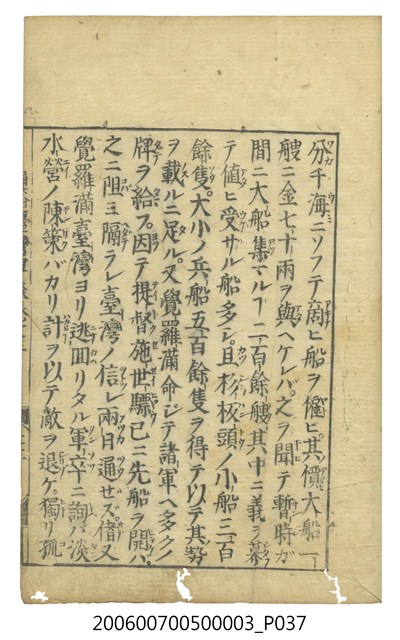 分チ海ニソフテ商ヒ船ヲ僱ヒ其價大船一
艘ニ金七十兩ヲ與ヘケレバ之ヲ聞テ暫時ガ
間ニ大船集マルヿ二百餘艘其中ニ義ヲ慕
テ値ヒ受サル船多シ且杉板頭ノ小船三百
餘隻大小ノ兵船五百餘隻ヲ得テ以テ其勢
ヲ載ルニ足ル又覺羅滿命ジテ諸軍ヘ多クノ
牌ヲ給フ因テ提督施世驃已ニ先船ヲ開ハ
之ニ阻ヨ隔ラレ臺灣ノ信レ兩日通ゼズ偖又
覺羅滿臺灣ヨリ逃回リタル軍卒ニ詢バ淡
水營ノ陳策バカリ計ヲ以テ敵ヲ退ケ獨リ孤
200600700500003_P037